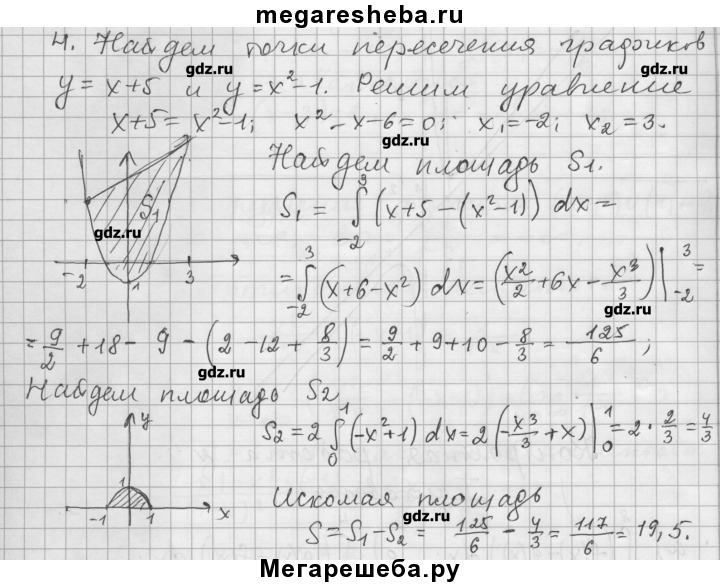 megaresheba.ru
4. Найдем точки пересечения графиков
gdz.ru
y = x+5 и y = x²-1. Решим уравнение
x+5 = x²-1; x²-x-6=0; x₁=-2; x₂=3.
gdz.ru
Найдем площадь S1.
gdz.ru
S₁ = ∫₋₂³ (x+5-(x²-1)) dx =
S1
gdz.ru
-2 1 3
= ∫₋₂³ (x+6-x²) dx = (x²/2 + 6x - x³/3) |₋₂³ =
gdz.ru
= 9/2 + 18 - 9 - (2 - 12 + 8/3) = 9/2 + 9 + 10 - 8/3 = 125/6;
gdz.ru
gdz.ru
Найдем площадь S2
gdz.ru
y
S₂ = 2 ∫₀¹ (-x²+1) dx = 2 (-x³/3 + x) |₀¹ = 2 · 2/3 = 4/3
gdz.ru
1
-1 1 x
Искомая площадь
gdz.ru
S = S₁ - S₂ = 125/6 - 4/3 = 117/6 = 19,5.
Мегарешеба.ру